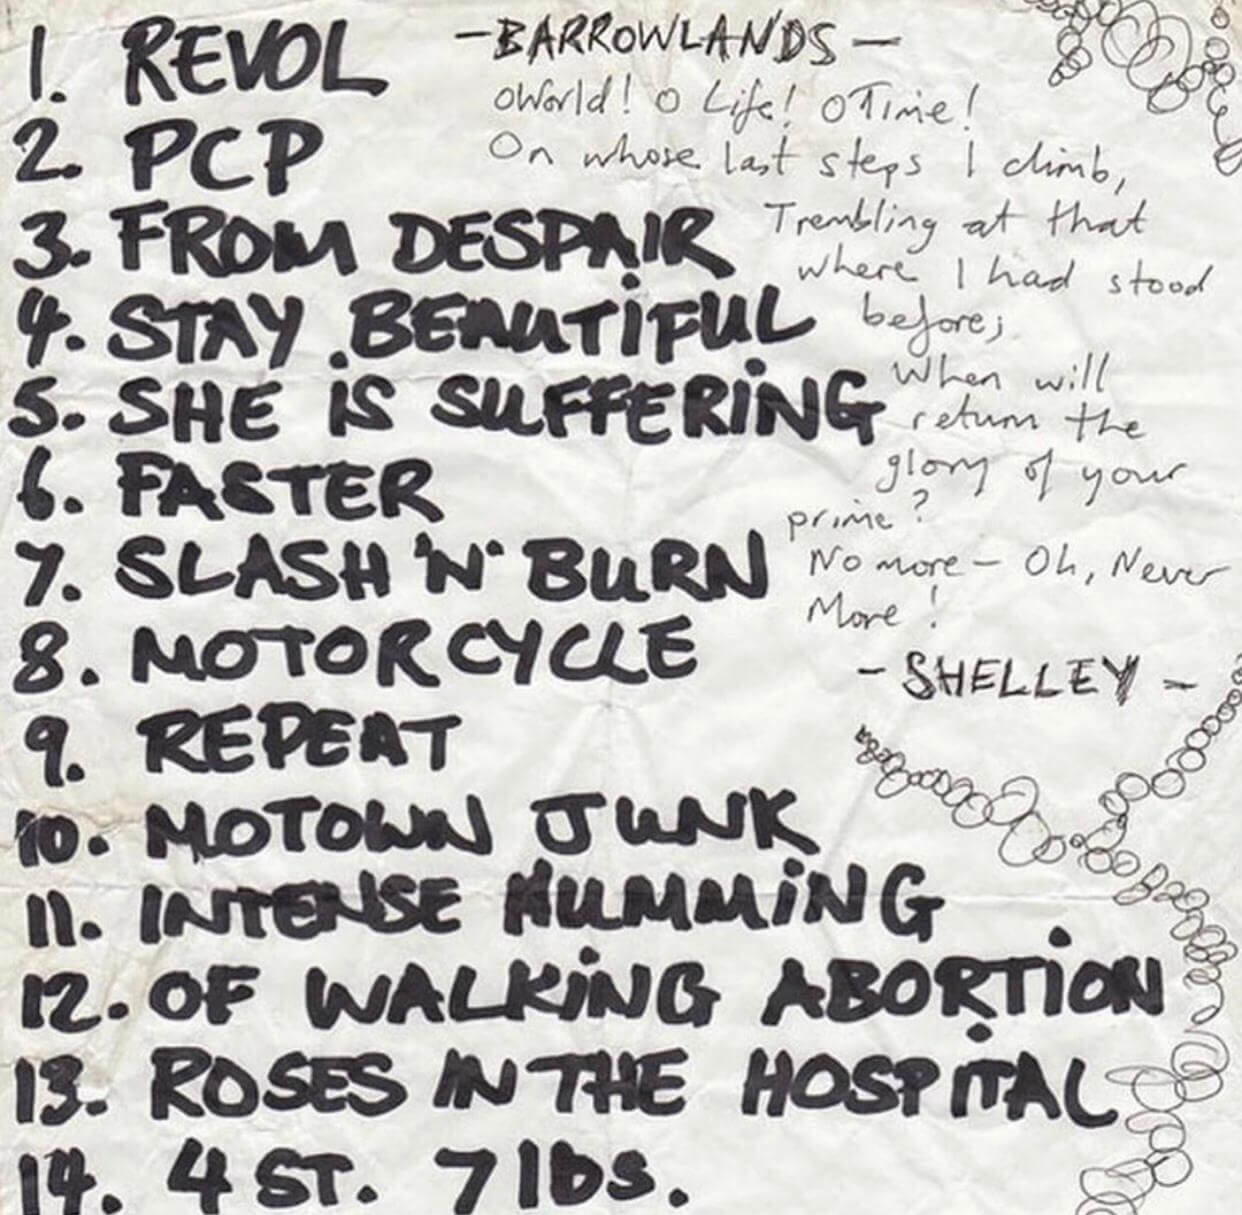 1. REVOL
- BARROWLANDS -
O World! O Life! O Time!
2. PCP
On whose last steps I climb,
3. FROM DESPAIR
Trembling at that
where I had stood
4. STAY BEAUTIFUL
before;
5. SHE IS SUFFERING
When will
return the
6. FASTER
glory of your
prime?
7. SLASH 'N' BURN
No more - Oh, Never
More!
8. MOTORCYCLE
- SHELLEY -
9. REPEAT
10. MOTOWN JUNK
11. INTENSE HUMMING
12. OF WALKING ABORTION
13. ROSES IN THE HOSPITAL
14. 4 ST. 7 lbs.